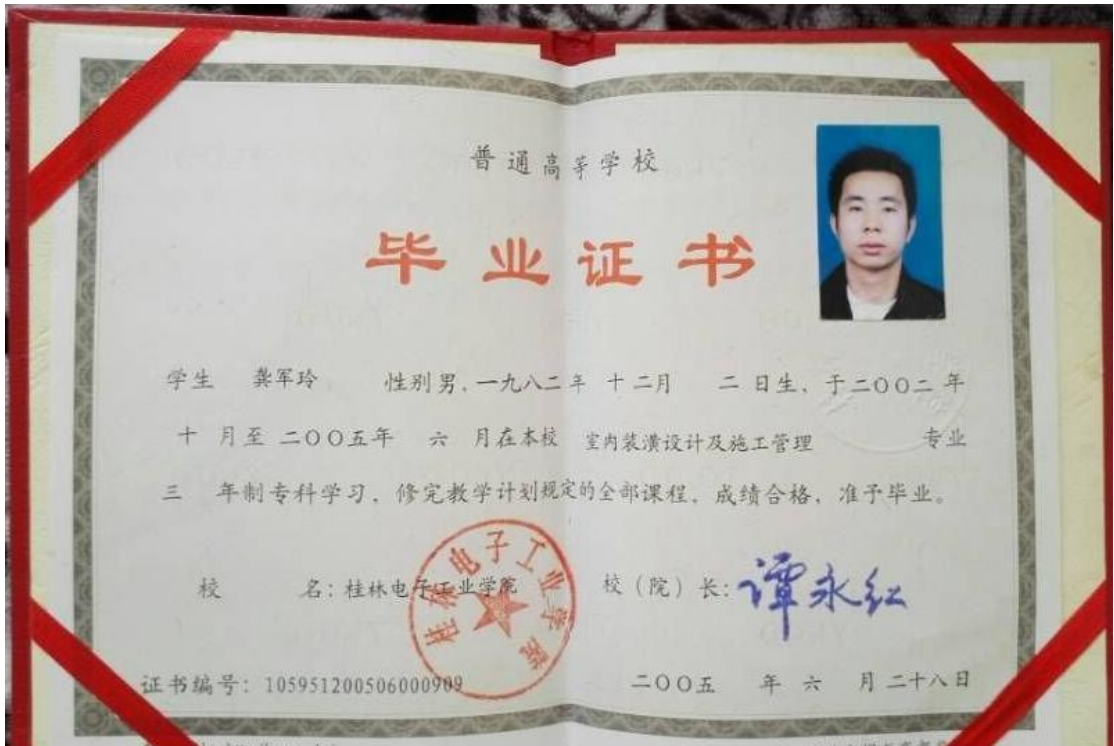 普通高等学校
毕业证书
学生 龚军玲 性别男，一九八二年 十二月 二日生，于二〇〇二年
十 月至 二〇〇五年 六 月在本校 室内装潢设计及施工管理 专业
三 年制专科学习，修完教学计划规定的全部课程，成绩合格，准予毕业。
校 名：桂林电子工业学院 校（院）长：谭永红
桂林电子工业学院
证书编号：105951200506000909 二〇〇五 年 六 月二十八日